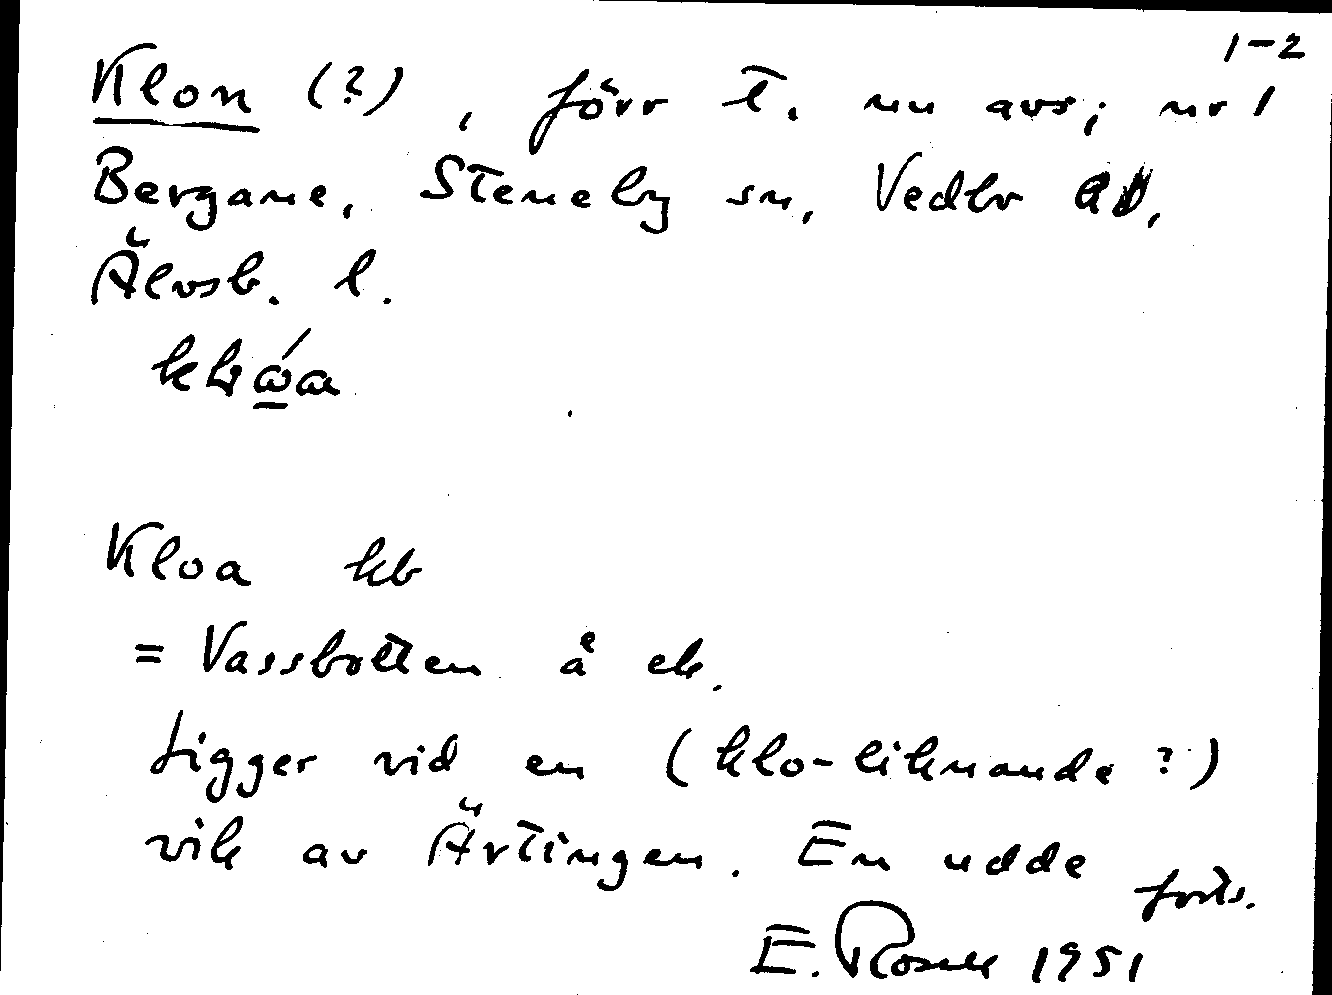 1-2
Klon (?), förr t. nu avs; nr 1
Bergane, Steneby sn, Vedbo
Älvsb. l.
Kloa kb
= Vassbotten å ek.
Ligger vid en (klo-liknande?)
vik av Ärtingen. En udde forts.
E. Rosell 1951